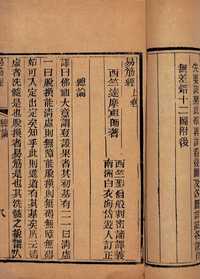 無差錯十二圖附後
易筋經上卷
西竺達摩祖師著
西竺聖僧般刺密諦譯義
南洲白衣海岱遊人訂正
總論
譯曰佛祖大意謂登證果者其初基有二一曰清虛
一曰脫換能清虛則無障能脫換則無碍無障無碍
始可入定出定矣知乎此則進道有其基矣所云清
虛者洗髓是也脫換者易筋是也其洗髓之說謂人
易筋經
總論